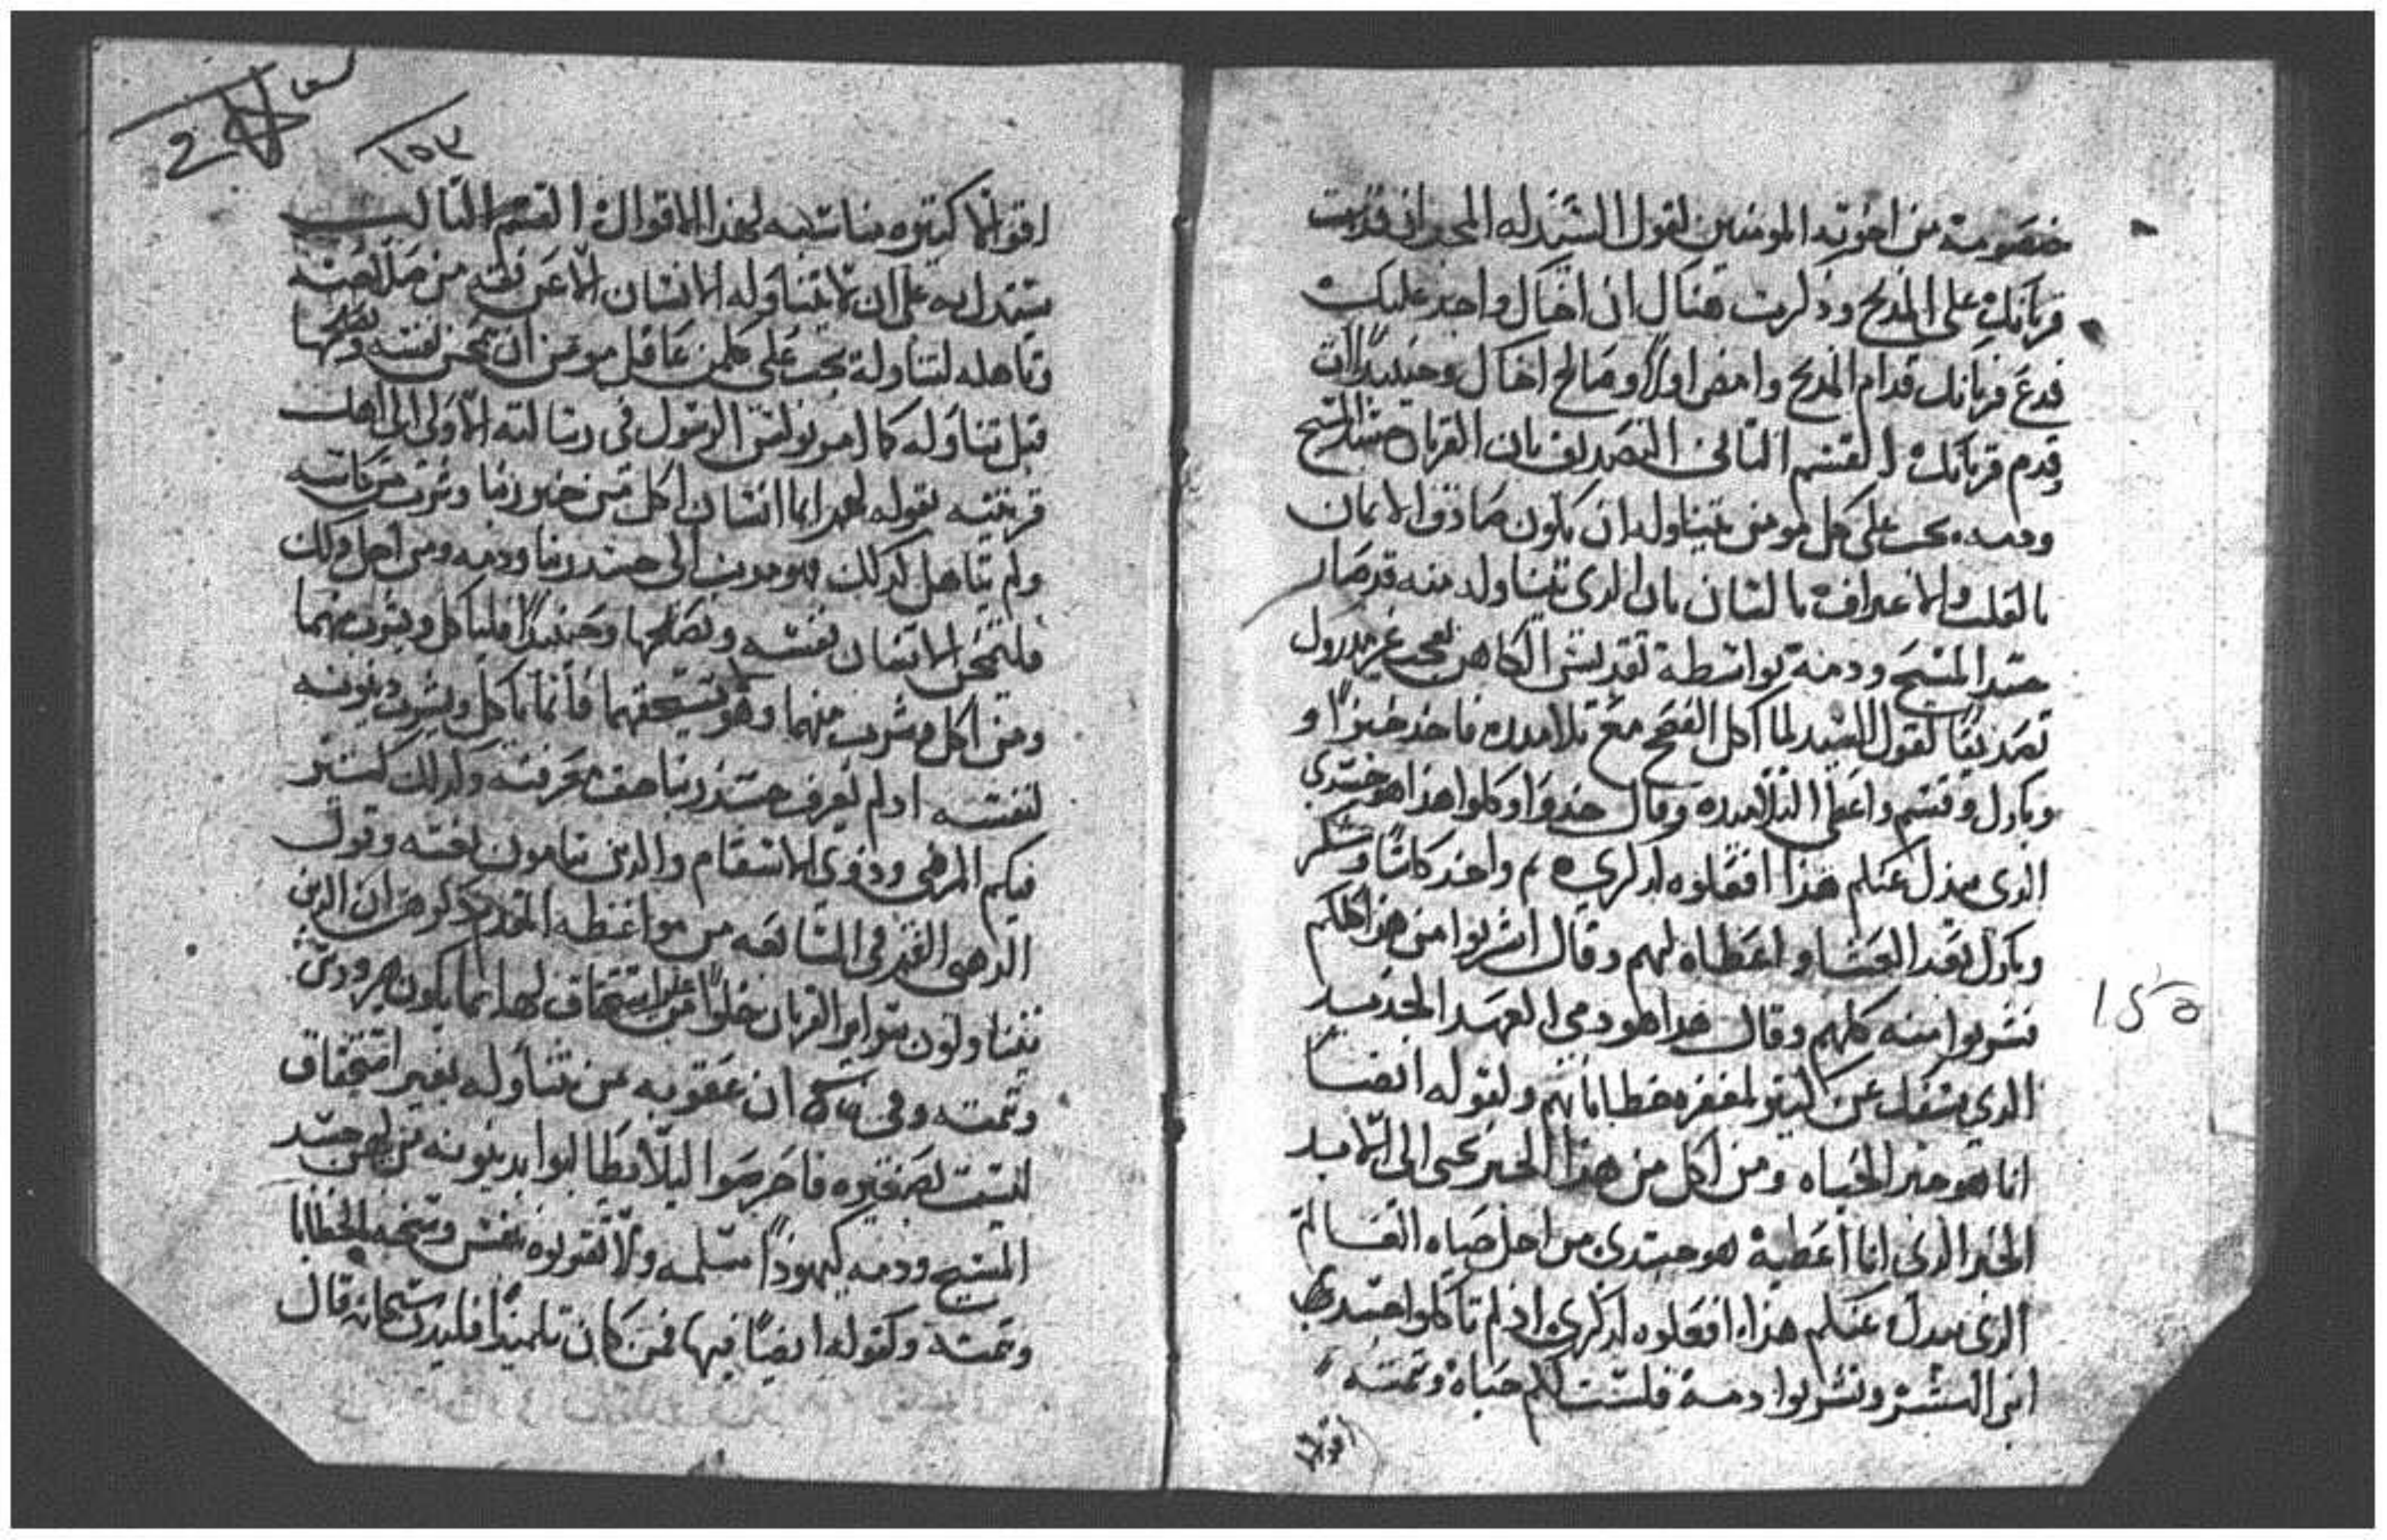 خصومة من اخوته المومنين لقول السيد له المجد ان قدمت
قربانك على المدبح وذكرت هناك ان اخاك واجد عليك
فدع قربانك قدام المدبح وامض اولاً وصالح اخاك وحينيداً ات
وقدم قربانك القسم التاني التصديق بان القربان جسد المسيح
ودمه يجب على كل مومن يتناوله ان يكون صادق الايمان
بالقلب والاعتراف باللسان بان الدي يتناوله منه قد صار
جسد المسيح ودمه بواسطة تقديس الكاهن
تصديقا لقول السيد لما اكل الفصح مع تلاميده فاخد خبزاً و
وبارك وقسم واعطى التلاميده وقال خدوا وكلوا هذا هو جسدي
الدي يبدل عنكم هذا افعلوه لدكري ثم واخد كاسًا وشكر
وبارك بعد العشا واعطاه لهم وقال اشربوا من هذا كلكم
فشربوا منه كلهم وقال هدا هو دمي العهد الجديد
الدي يسفك عن كتير لمغفرة خطاياهم ولقوله ايضا
انا هو خبز الحياه ومن اكل من هذا الخبز يحيى الى الابد
الخبز الدي انا اعطيه هو جسدي من اجل حياه العالم
الدي يبدل عنكم هذا افعلوه لدكري اذ لم تاكلوا جسد
ابن البشر وتشربوا دمه فلست لكم حياة وتمته
اقوالا
١٥٥
١٥٣
اقوالا كتيره مناسبه لهذا الاقوال القسم التالت
يستدل به على ان لا يتناوله الانسان الا عن نقيه من
وتاهله لتناوله يجب على كلمن عاقل مومن ان يمحن نفسه
قبل تناوله كما امر بولس الرسول في رسالته الاولى الى اهل
قرنتيه بقوله لهم ايما انسان اكل من خبز ربنا وشرب من كاسه
ولم يتاهل لدلك فهو مدين الى جسد ربنا ودمه ومن اجل دلك
فليمتحن الانسان نفسه ويصلحها وحينيداً فلياكل ويشرب منهما
ومن اكل وشرب منهما وهو لا يستحقهما فانما ياكل ويشرب دينونه
لنفسه اد لم يعرف جسد ربنا حق معرفته ولدلك كتر
فيكم المرضى ودوي الاسقام والدين يتامون بغته وقول
الدهبي الفم في السابعه من مواعظه ان الدين
يتناولون سراير القربان خلوًا من استحقاق لها
وتمته وفي ان عقوبه من تناوله بغير استحقاق
ليست بصغيره فاحرصوا ليلا تطالبوا بدينونه من جسد
المسيح ودمه كيهودا مسلمه ولا تقربوه بنفس وسخه بالخطايا
وتمته وكقوله ايضًا فيها فمن كان تلميذاً فليدن قال